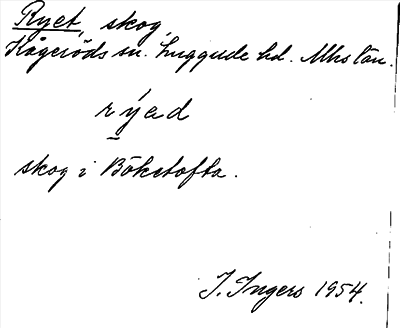 Ryet, skog,
Kågeröds sn. Luggude hd. Mhs län.
rýad
skog i Bökstofta.
I. Ingers 1954.